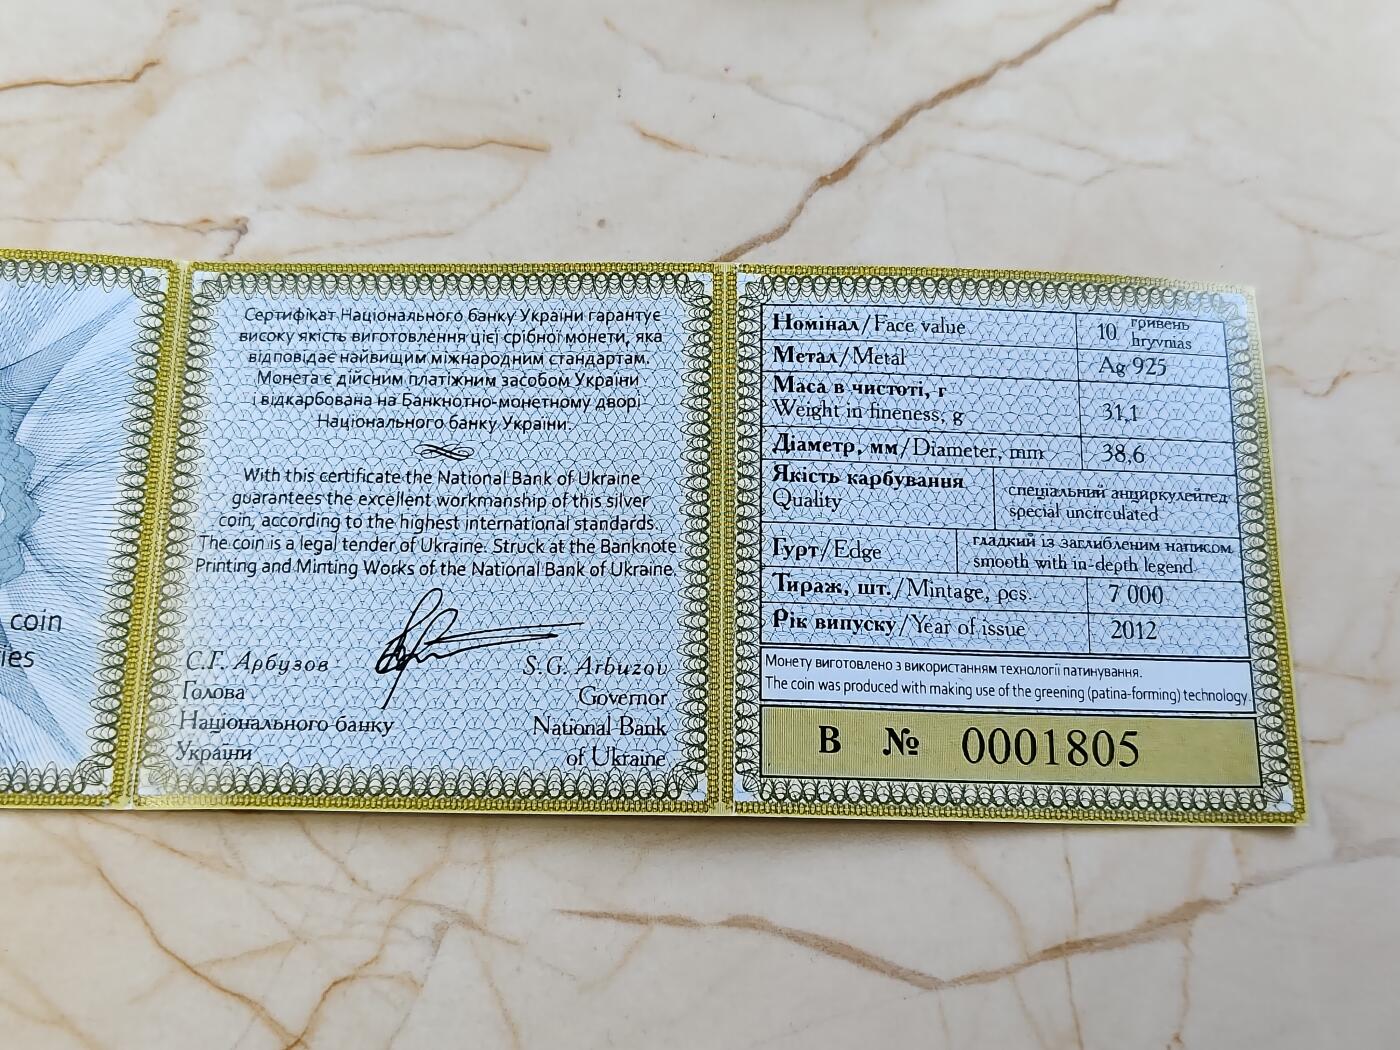 coin
Сертифікат Національного банку України гарантує
високу якість виготовлення цієї срібної монети, яка
відповідає найвищим міжнародним стандартам.
Монета є дійсним платіжним засобом України
і відкарбована на Банкнотно-монетному дворі
Національного банку України.
With this certificate the National Bank of Ukraine
guarantees the excellent workmanship of this silver
coin, according to the highest international standards.
The coin is a legal tender of Ukraine. Struck at the Banknote
Printing and Minting Works of the National Bank of Ukraine.
С.Г. Арбузов
Голова
Національного банку
України
S.G. Arbuzov
Governor
National Bank
of Ukraine
Номінал/Face value 10 гривень hryvnias
Метал/Metal Ag 925
Маса в чистоті, г
Weight in fineness, g 31,1
Діаметр, мм/Diameter, mm 38,6
Якість карбування спеціальний анциркулейтед
Quality special uncirculated
Гурт/Edge гладкий із заглибленим написом
smooth with in-depth legend
Тираж, шт./Mintage, pcs. 7 000
Рік випуску/Year of issue 2012
Монету виготовлено з використанням технології патинування.
The coin was produced with making use of the greening (patina-forming) technology.
В № 0001805